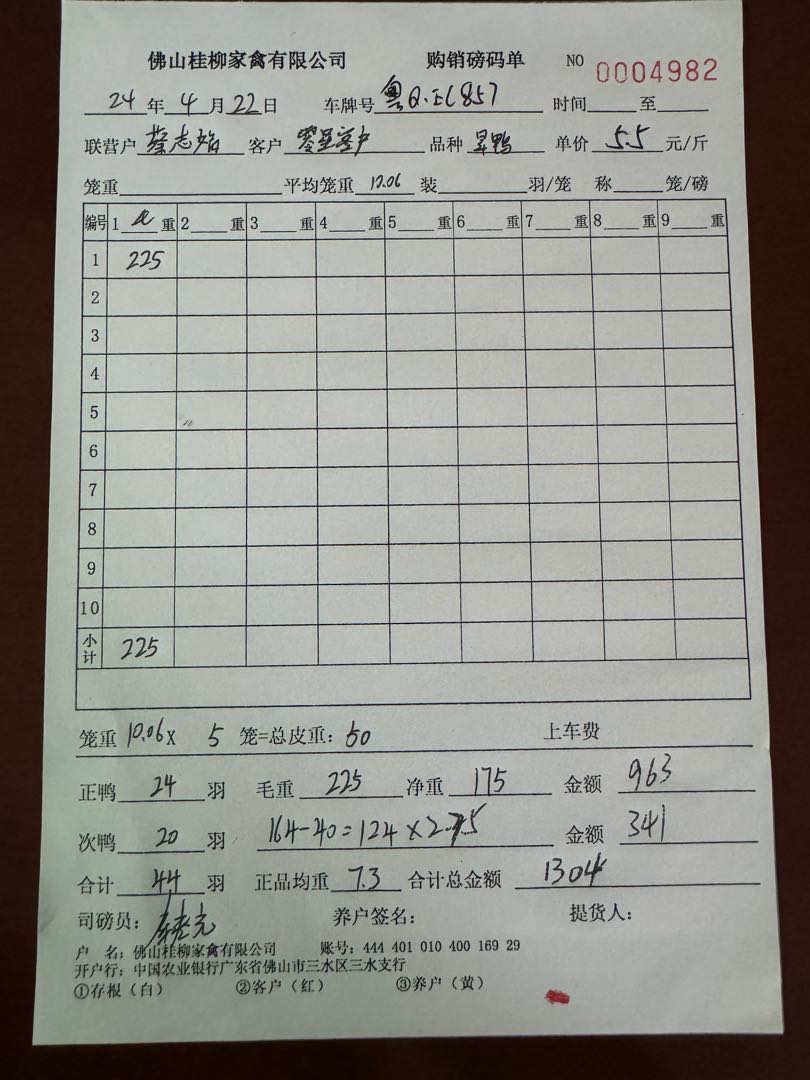 佛山桂柳家禽有限公司 购销磅码单 NO 0004982
24年4月22日 车牌号 粤Q. 857 时间 至
联营户 蔡志 客户 零星客户 品种 鸭 单价 5.5 元/斤
笼重 平均笼重 10.06 装 羽/笼 称 笼/磅
编号 1 重 2 重 3 重 4 重 5 重 6 重 7 重 8 重 9 重
1 225
2
3
4
5
6
7
8
9
10
小计 225
笼重 10.06 X 5 笼=总皮重: 50 上车费
正鸭 24 羽 毛重 225 净重 175 金额 963
次鸭 20 羽 164-40=124×2.75 金额 341
合计 44 羽 正品均重 7.3 合计总金额 1304
司磅员: 养户签名: 提货人:
户 名: 佛山桂柳家禽有限公司 账号: 444 401 010 400 169 29
开户行: 中国农业银行广东省佛山市三水区三水支行
①存根(白) ②客户(红) ③养户(黄)